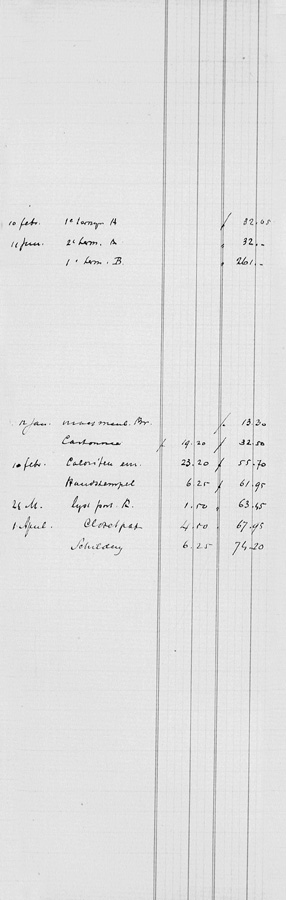 10 febr. 1e termijn A ƒ 32.05
11 Juni. 2e term. A " 32.-
1e term. B. " 261.-
12 Jan. ƒ 13.30
Cartonnage ƒ 19.20 ƒ 32.50
10 febr. 23.20 ƒ 55.70
Handstempel 6.25 ƒ 61.95
1.50 " 63.45
1 April. Closetpap 4.50 " 67.95
Schildery 6.25 74.20